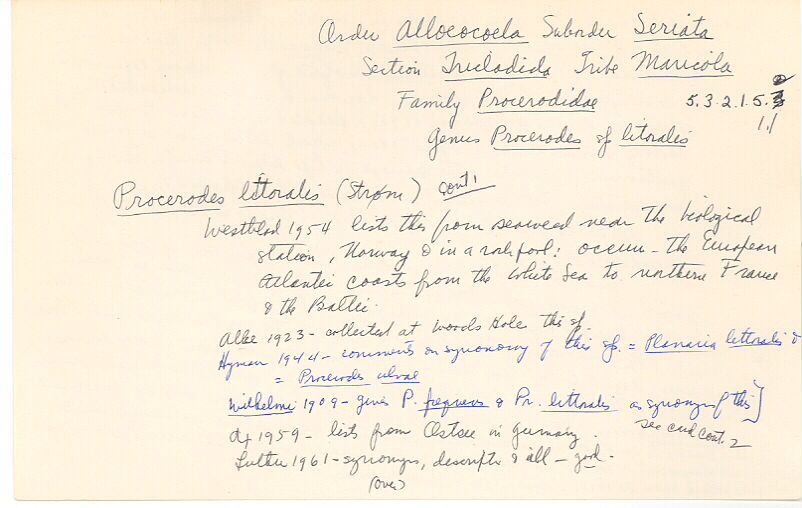 Order Alloeocoela Suborder Seriata
Section Tricladida Tribe Maricola
Family Procerodidae 5.3.2.1.5.
1.1
Genus Procerodes sp litoralis
Procerodes littoralis (Strøm) cont 1
Westblad 1954 lists this from seaweed near the biological
station, Norway & in a rockpool: occurs - the European
Atlantic coasts from the White Sea to northern France
& the Baltic.
Allee 1923 - collected at Woods Hole this sp.
Hyman 1944 - comments on synonomy of this sp. = Planaria littoralis &
= Procerodes ulvae
Wilhelmi 1909 - gives P. frequens & Pr. littoralis as synonyms of this]
see card cont. 2
1959 - lists from Ostsee in Germany.
Luther 1961 - synonyms, descripts & all - good.
(over)